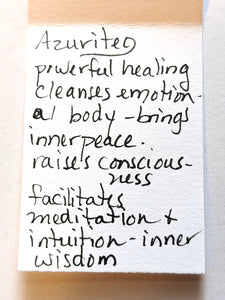 Azurite
powerful healing
cleanses emotion-
al body - brings
inner peace.
raises conscious-
ness
facilitates
meditation +
intuition - inner
wisdom